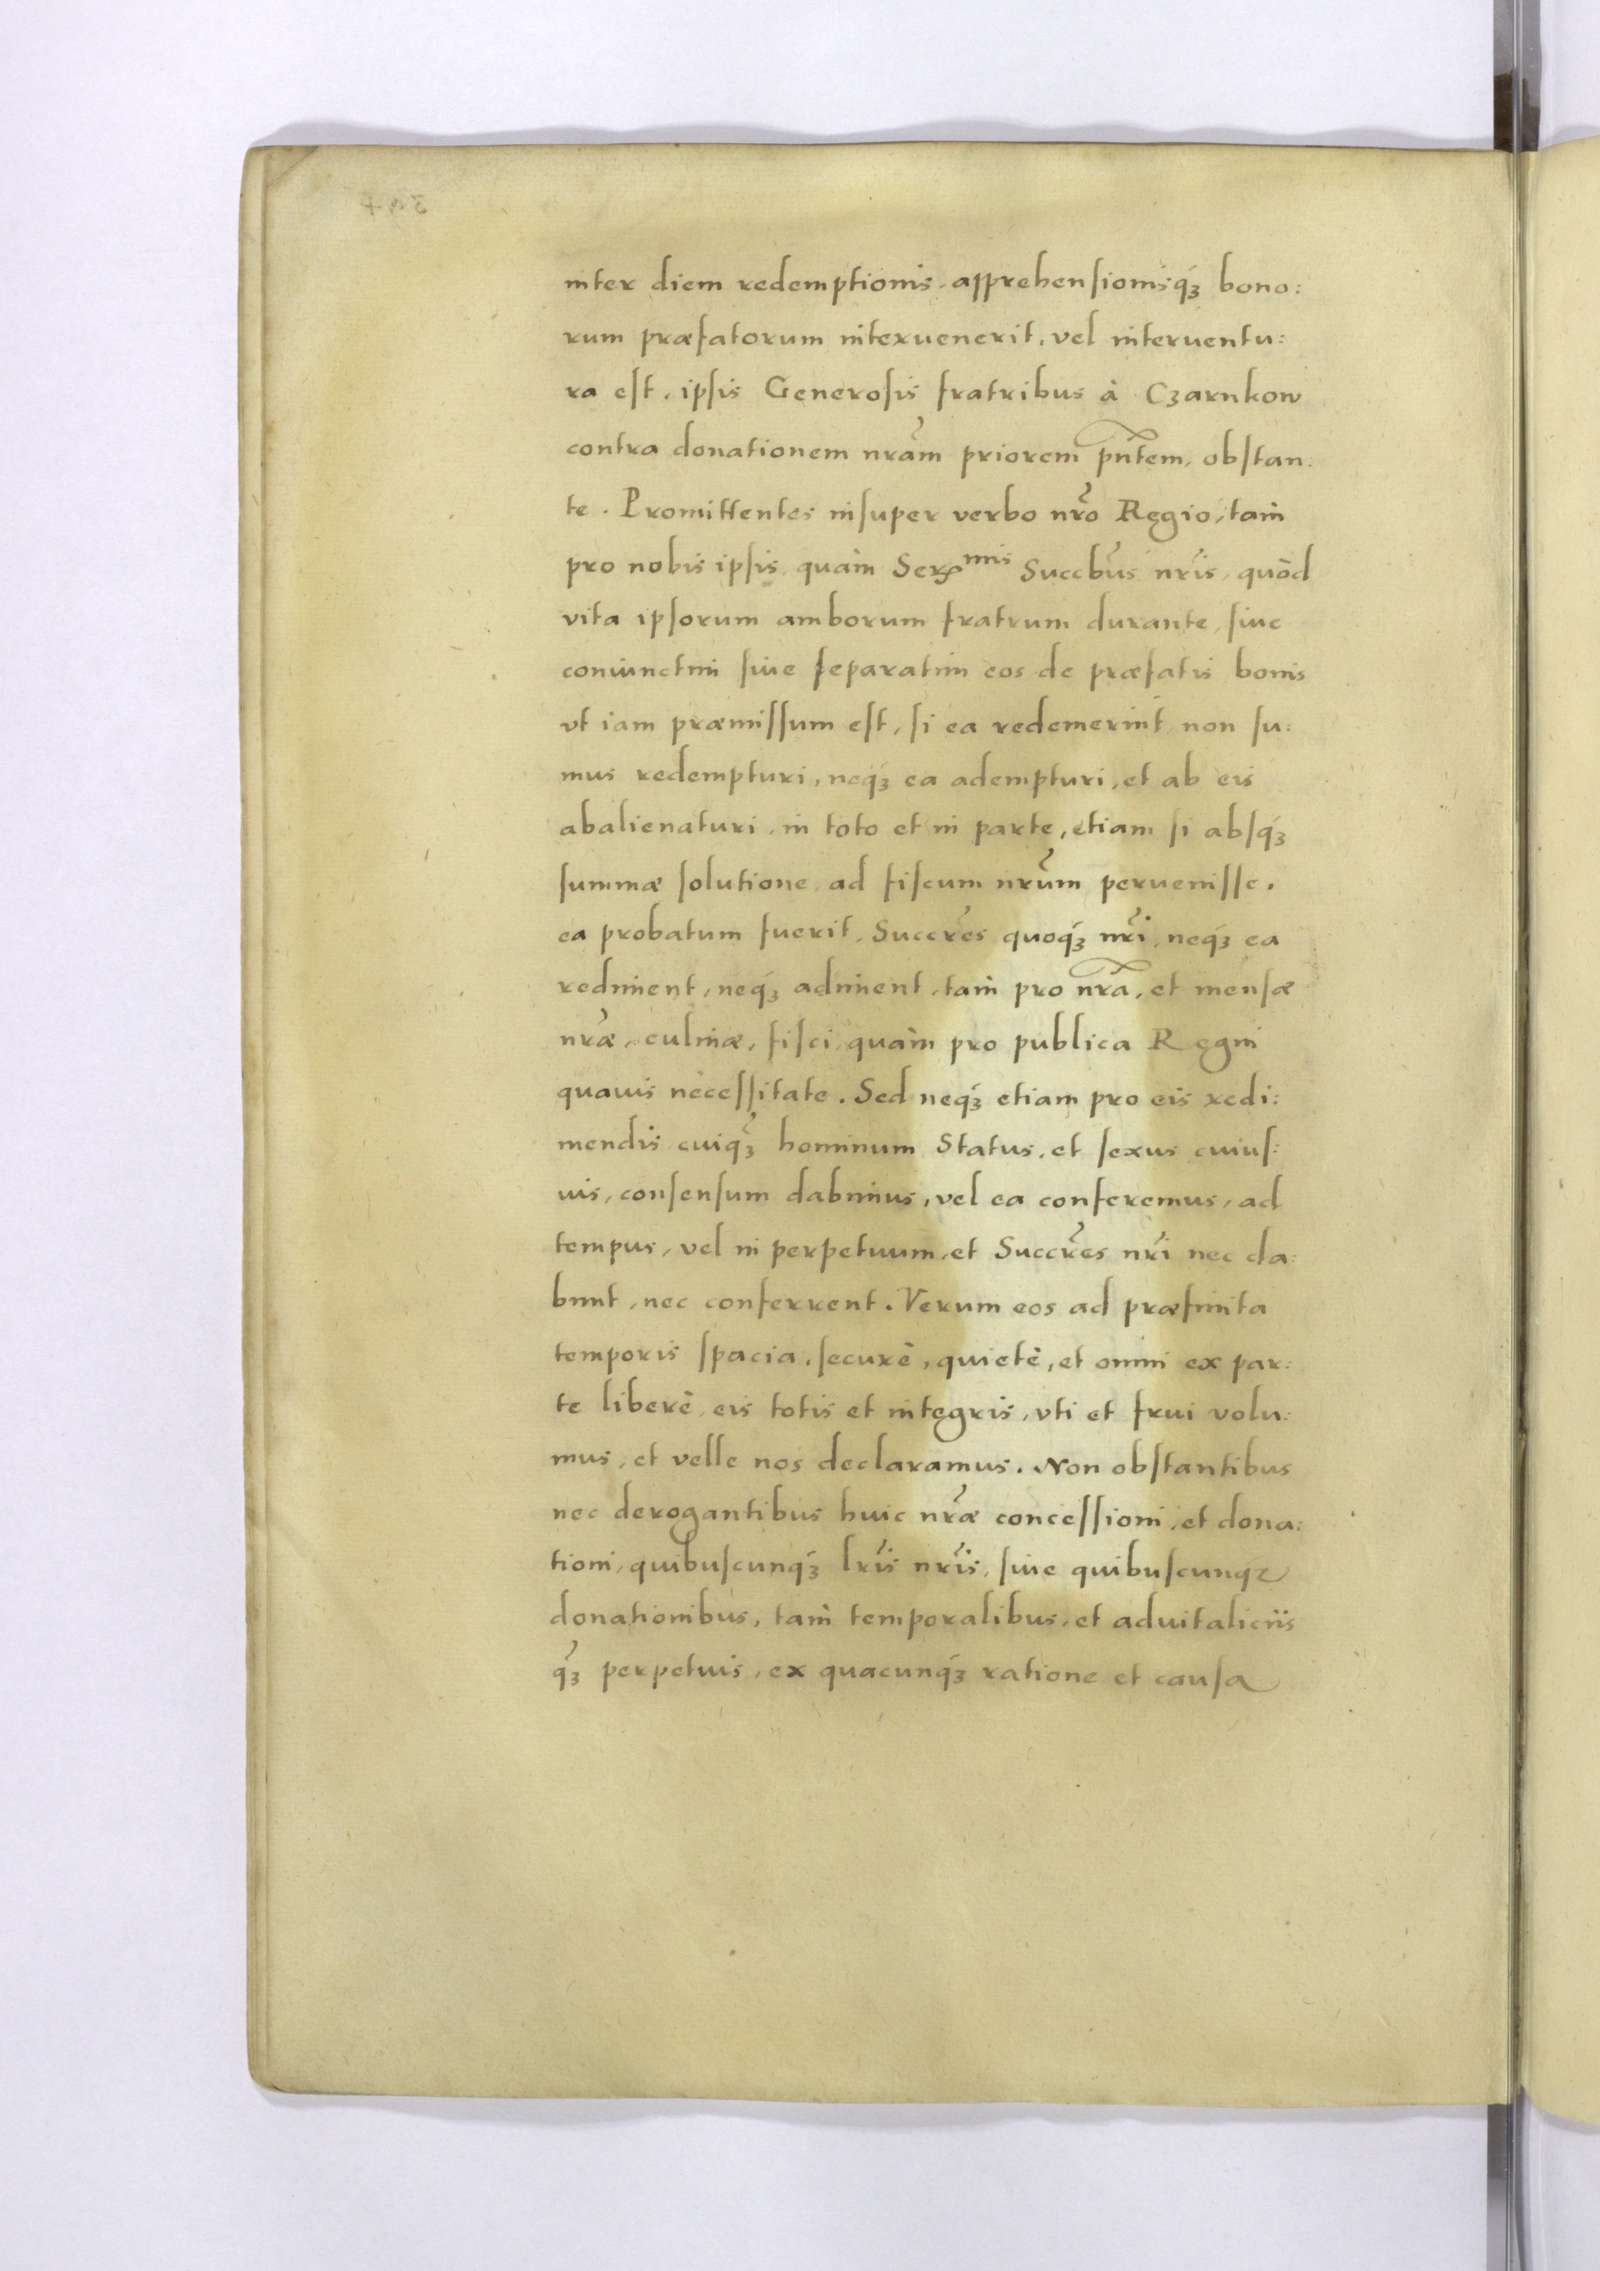 inter diem redemptionis, apprehensionisq́ꝫ bono:
rum præfatorum interuenerit, vel interuentu:
ra est, ipsis Generosis fratribus à Czarnkow
contra donationem nr̃am priorem pñtem, obstan:
te. Promittentes insuper verbo nr̃o Regio, tam̀
pro nobis ipsis quàm Ser^mis Succb̃us nr̃is, quòd
vita ipsorum amborum fratrum durante, siue
coniunctim siue separatim eos de præfatis bonis
vt iam præmissum est, si ea redemerint non su:
mus redempturi, neq́ꝫ ea adempturi, et ab eis
abalienaturi, in toto et in parte, etiam si absq́ꝫ
summæ solutione, ad fiscum nr̃um peruenisse.
ea probatum fuerit. Succr̃es quoq́ꝫ nr̃i, neq́ꝫ ea
rediment, neq́ꝫ adiment, tam̀ pro nr̃a, et mensæ
nr̃æ, culinæ, fisci, quàm pro publica Regni
quauis necessitate. Sed neq́ꝫ etiam pro eis redi:
mendis cuiq̃ꝫ hominum Status, et sexus cuius:
uis, consensum dabimus, vel ea conferemus, ad
tempus, vel in perpetuum, et Succr̃es nr̃i nec da:
bunt, nec conferrent. Verum eos ad præfinita
temporis spacia, securè, quietè, et omni ex par:
te liberè, eis totis et integris, vti et frui volu:
mus, et velle nos declaramus. Non obstantibus
nec derogantibus huic nr̃æ concessioni, et dona:
tioni, quibuscunq́ꝫ lr̃is nr̃is, siue quibuscunqꝫ
donationibus, tam̀ temporalibus, et aduitaliciis
q̃ꝫ perpetuis, ex quacunq́ꝫ ratione et causa